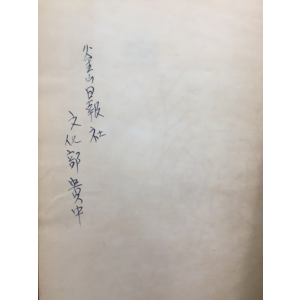 釜山日報社
文化部 貴中